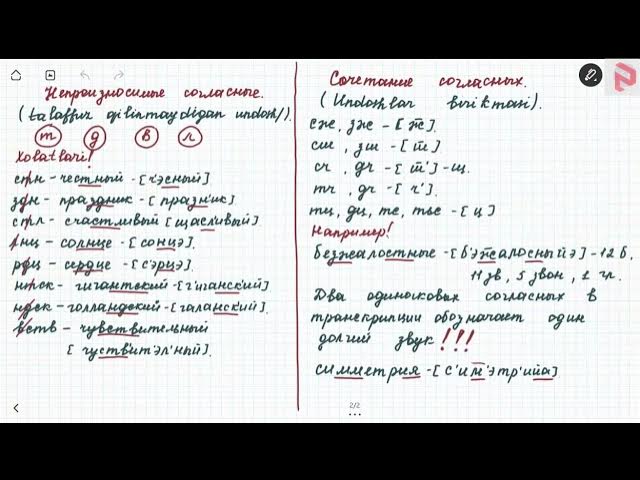 Непроизносимые согласные.
(talaffuz qilinmaydigan undosh/).
т д в л
Xolatlari!
стн – честный – [ч'эсный]
здн – праздник – [празн'ик]
стл – счастливый [щасл'ивый]
лнц – солнце – [сонцэ]
рдц – сердце – [с'эрцэ]
нтск – гигантский – [г'иганский]
ндск – голландский – [галанский]
вств – чувствительный
[чуств'ит'эл'ный].
Сочетание согласных.
(Undoshlar birikmasi).
сж, зж – [ж̅].
сш, зш – [ш̅]
сч, дч – [ш̅'] – щ.
тч, дч – [ч'].
тц, дц, тс, тьс – [ц]
Например!
безжалостные – [б'эжалосный'э] – 12 б.
11 зв, 5 звон, 1 гл.
Два одинаковых согласных в
транскрипции обозначает один
долгий звук!!!
симметрия – [с'им̅'этр'ийа]
2/2